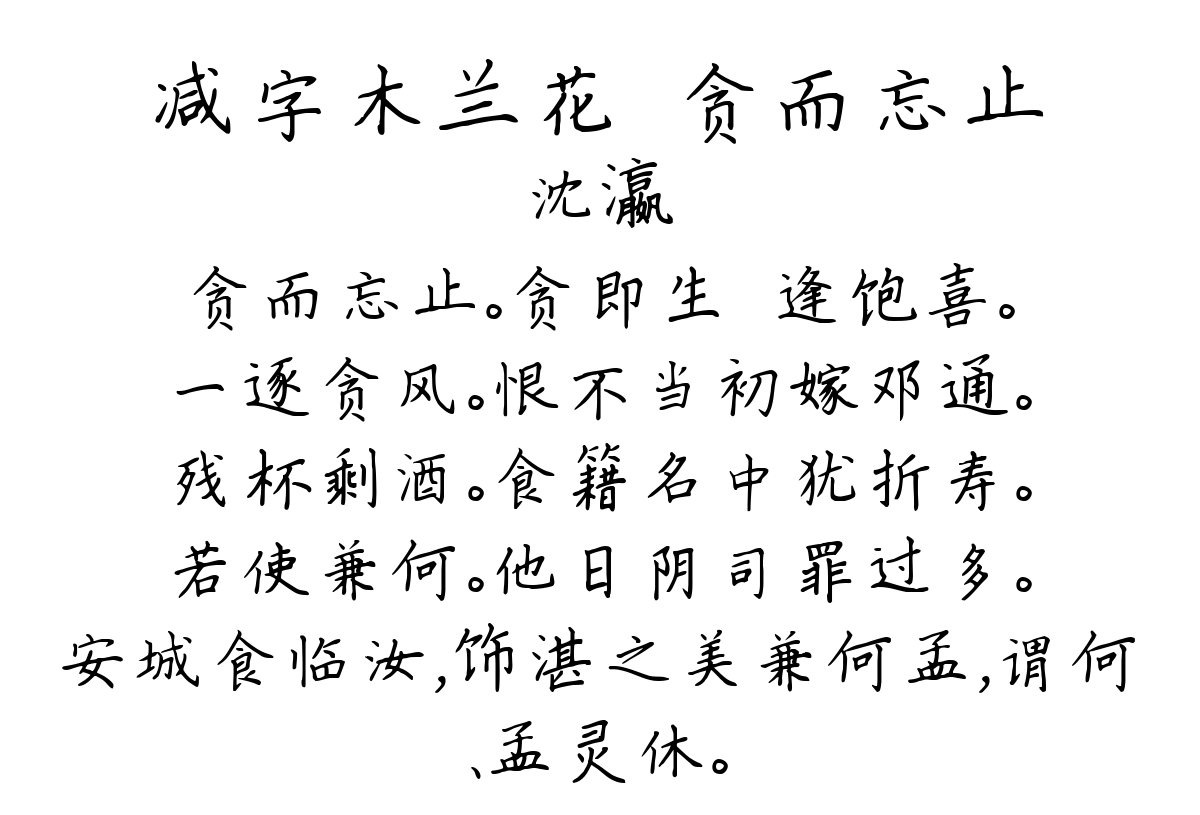 减字木兰花 贪而忘止
沈瀛
贪而忘止。贪即生 逢饱喜。
一逐贪风。恨不当初嫁邓通。
残杯剩酒。食籍名中犹折寿。
若使兼何。他日阴司罪过多。
安城食临汝,饰湛之美兼何孟,谓何
、孟灵休。